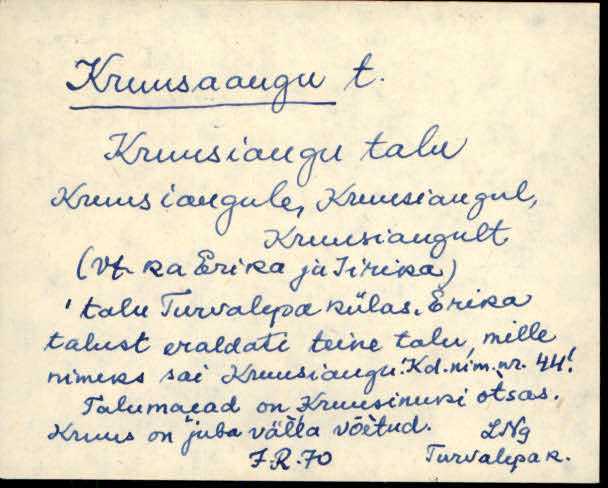 Kruusaaugu t.
Kruusiaugu talu
Kruusiaugule, Kruusiaugul,
Kruusiaugult
(Vt. ka Erika ja Iirika)
' talu Turvalepa külas. Erika
talust eraldati teine talu, mille
nimeks sai Kruusiaugu. Kd. nim. nr. 44!
Talumaead on Kruusinuki otsas.
Kruus on juba välla võetud.
LNg
F.R. 70
Turvalepa k.